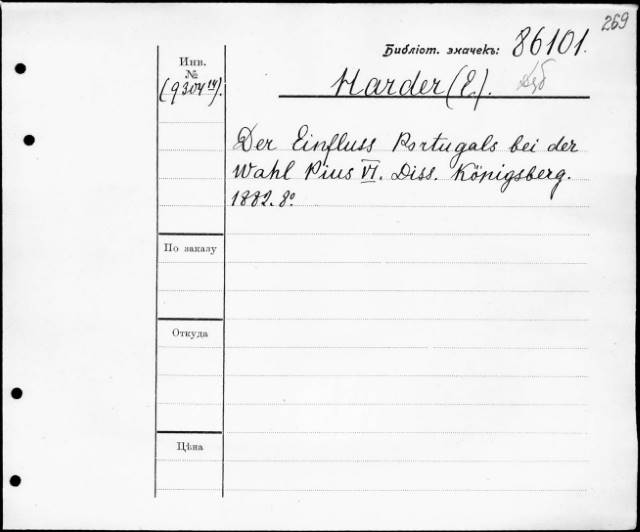 269
Библіот. значекъ: 86101.
Инв.
№
(9304¹⁴).
Harder (E.).
Der Einfluss Portugals bei der
Wahl Pius VI. Diss. Königsberg.
1882. 8°
По заказу
Откуда
Цѣна